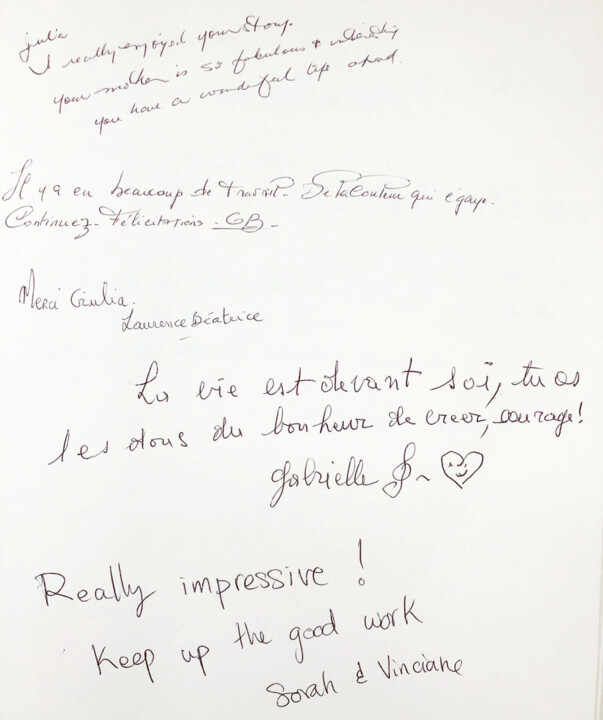 Julia
I really enjoyed your story.
your mother is so fabulous & interesting
you have a wonderful life ahead.
Il y a eu beaucoup de travail - De la Couleur qui égaye.
Continuez - Félicitations - GB -
Merci Giulia.
Laurence Béatrice
La vie est devant soi, tu as
les dons du bonheur de creer, courage!
Gabrielle
Really impressive !
Keep up the good work
Sarah & Vinciane